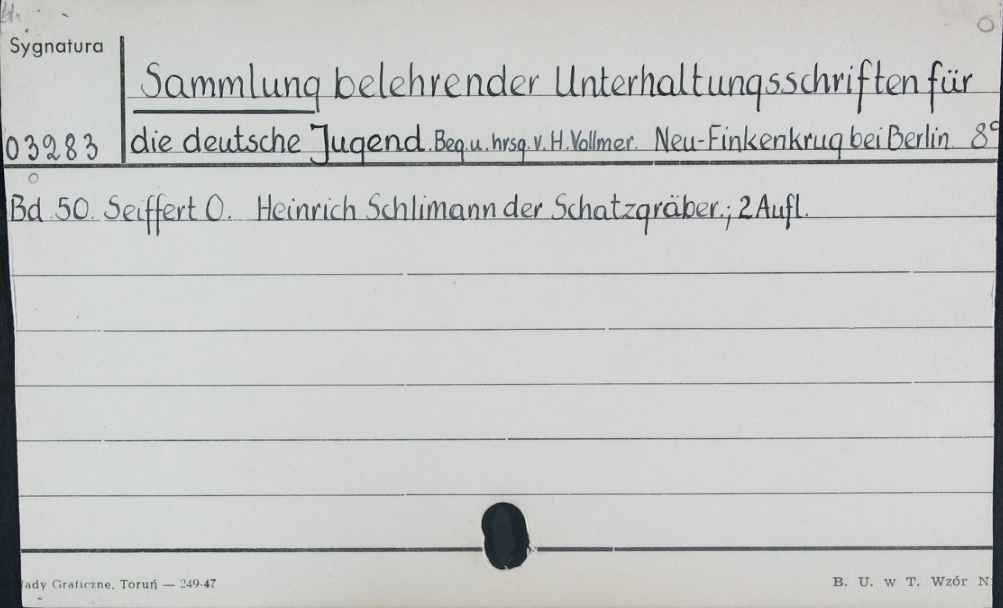 Sygnatura
Sammlung belehrender Unterhaltungsschriften für
03283 die deutsche Jugend. Beg. u. hrsg. v. H. Vollmer. Neu-Finkenkrug bei Berlin. 8°
Bd 50. Seiffert O. Heinrich Schlimann der Schatzgräber.; 2 Aufl.
ady Graficzne, Toruń — 249-47
B. U. w T. Wzór N